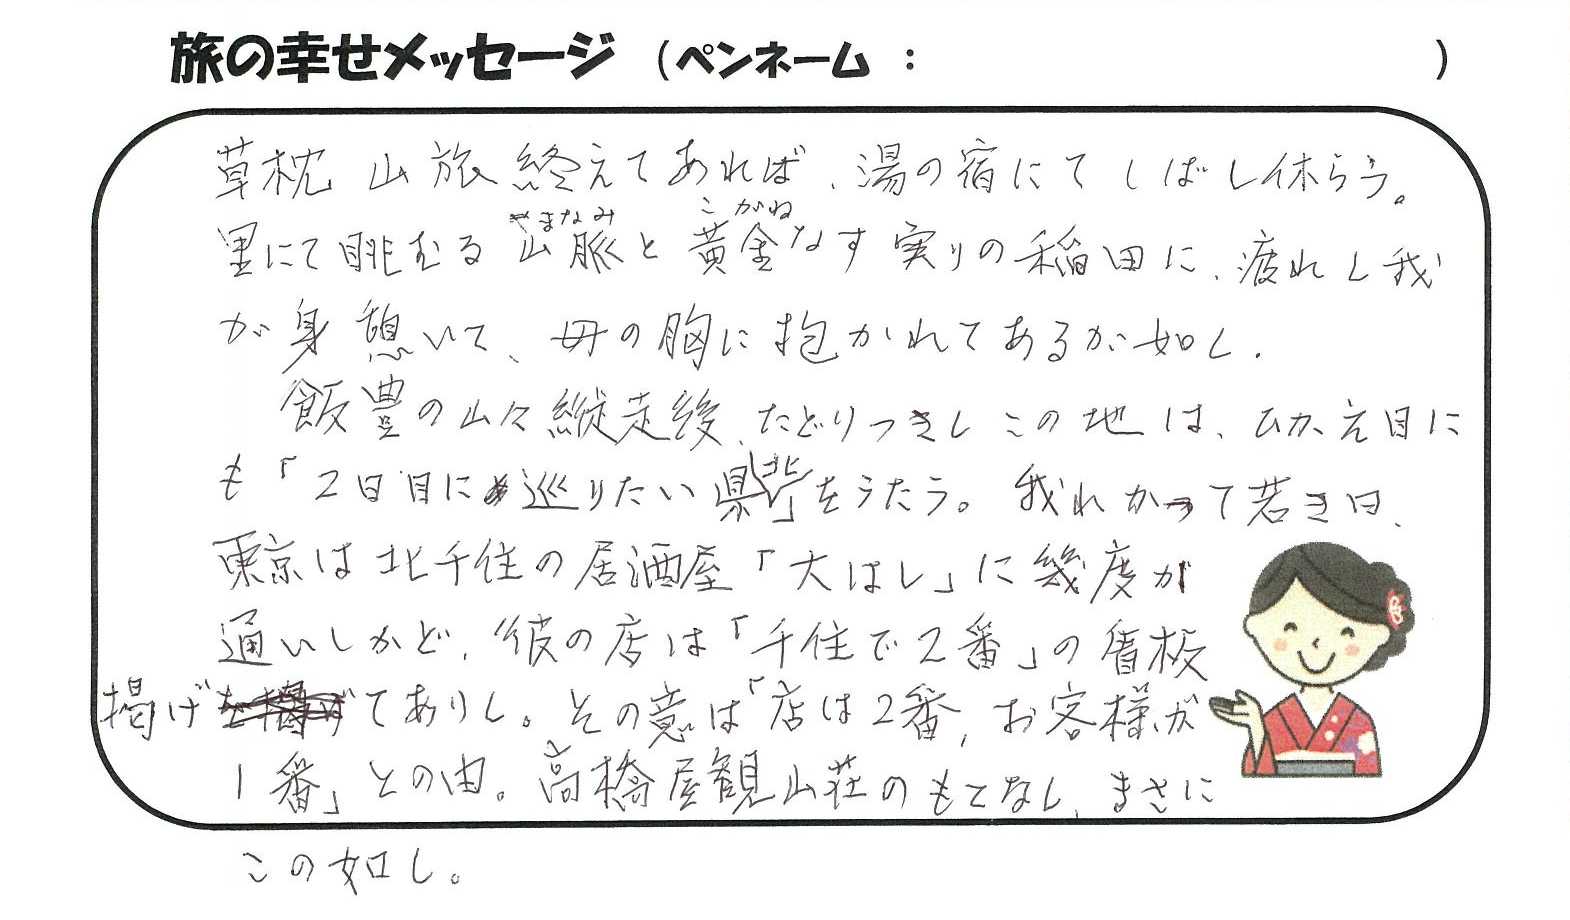 旅の幸せメッセージ （ペンネーム ： ）
草枕 山旅 終えてあれば、湯の宿にて しばし休らう。
里にて眺むる 山脈と 黄金なす 実りの稲田に、疲れし我
やまなみ こがね
が身 憩いて、母の胸に抱かれてあるが如し。
飯豊の山々縦走後、たどりつきし この地は、ひかえ目に
も「2日目に巡りたい県北」をうたう。 我れかつて若き日、
東京は北千住の居酒屋「大はし」に幾度が
通いしかど、彼の店は「千住で2番」の看板
掲げてありし。その意は「店は2番、お客様が
1番」との由。高橋屋観山荘のもてなし、まさに
この如し。